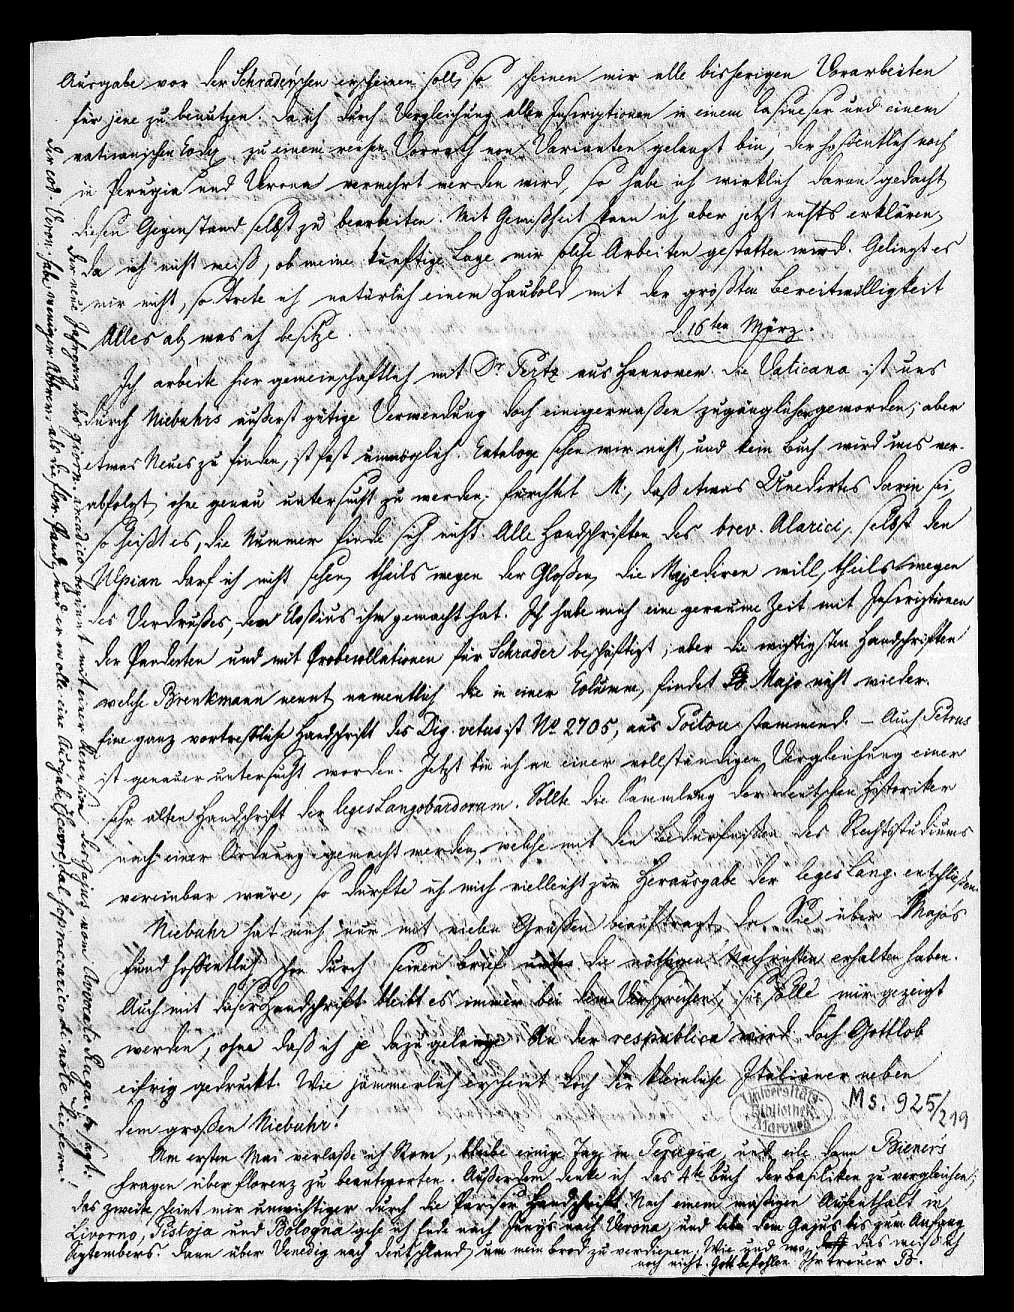 Ausgabe vor der Schrader'schen erscheinen soll, so scheinen mir alle bisherigen Vorarbeiten
für jene zu benutzen. Da ich durch Vergleichung aller Inscriptionen in einem Casineser und einem
vaticanischen Codex zu einem reichen Vorrath von Varianten gelangt bin, der hoffentlich noch
in Perugia und Verona vermehrt werden wird, so habe ich wirklich daran gedacht,
diesen Gegenstand selbst zu bearbeiten. Mit Gewißheit kann ich aber jetzt nichts erklären,
da ich nicht weiß, ob meine künftige Lage mir solche Arbeiten gestatten wird. Gelingt es
mir nicht, so trete ich natürlich einem Haubold mit der größten Bereitwilligkeit
Alles ab, was ich besitze.
d. 16ten März.
Ich arbeite hier gemeinschaftlich mit Dr Pertz aus Hannover. Die Vaticana ist uns
durch Niebuhrs äußerst gütige Verwendung doch einigermaßen zugänglicher geworden; aber
etwas Neues zu finden, ist fast unmöglich. Cataloge sehen wir nicht, und kein Buch wird uns ver-
abfolgt, ohne genau untersucht zu werden. Fürchtet M., daß etwas Unedirtes darin sei,
so heißt es, die Nummer finde sich nicht. Alle Handschriften des brev. Alarici, selbst den
Ulpian darf ich nicht sehen, theils wegen der Gloßen, die Majo ediren will, theils wegen
des Verdrußes, den Cloßius ihm gemacht hat. Ich habe mich eine geraume Zeit mit Inscriptionen
der Pandecten und mit Probecollationen für Schrader beschäftigt; aber die wichtigsten Handschriften
welche Brenkmann nennt, namentlich die in einer Columne, findet Majo nicht wieder.
Eine ganz vortreffliche Handschrift des Dig. vetus ist No 2705, aus Poitou stammend. – Auch Petrus
ist genauer untersucht worden. Jetzt bin ich an einer vollständigen Vergleichung einer
sehr alten Handschrift der leges Langobardorum. Sollte die Sammlung der deutschen Historiker
nach einer Ordnung gemacht werden, welche mit den Bedürfnißen des Rechtsstudiums
vereinbar wäre, so dürfte ich mich vielleicht zur Herausgabe der leges Lang. entschließen.
Niebuhr hat mich nur mit vielen Grüßen beauftragt, da Sie über Majo's
Fund hoffentlich schon durch seinen Brief die nöthigen Nachrichten erhalten haben.
Auch mit dieser Handschrift bleibt es immer bei dem Versprechen, sie solle mir gezeigt
werden, ohne daß ich je dazu gelange. An der respublica wird doch Gottlob
eifrig gedruckt. Wie jämmerlich erscheint doch der kleinliche Italiäner neben
dem großen Niebuhr!
Universitäts
Bibliothek
Marburg
Ms. 925/219
Am ersten Mai verlaße ich Rom, bleibe einige Tage in Perugia, und eile dann Biener's
Fragen über Florenz zu beantworten. Außerdem denke ich das 4te Buch der Basiliken zu vergleichen;
das zweite scheint mir unwichtiger durch die Pariser Handschrift. Nach einem mäßigen Aufenthalt in
Livorno, Pistoja und Bologna gehe ich Ende nach Junys nach Verona, und lebe dem Gajus bis zum Anfang
Septembers. Dann über Venedig nach Deutschland, um mein Brod zu verdienen. Wie und wo, das weiß ich
noch nicht. Gott befohlen. Ihr treuer B.
Der neue Jahrgang des giorn. arcadico beginnt mit einer Recension des Gajus vom Avvocato Ruga. Er sagt:
der cod. Veron. habe weniger Abbrev. als die flor. Pand. und er wolle eine Ausgabe